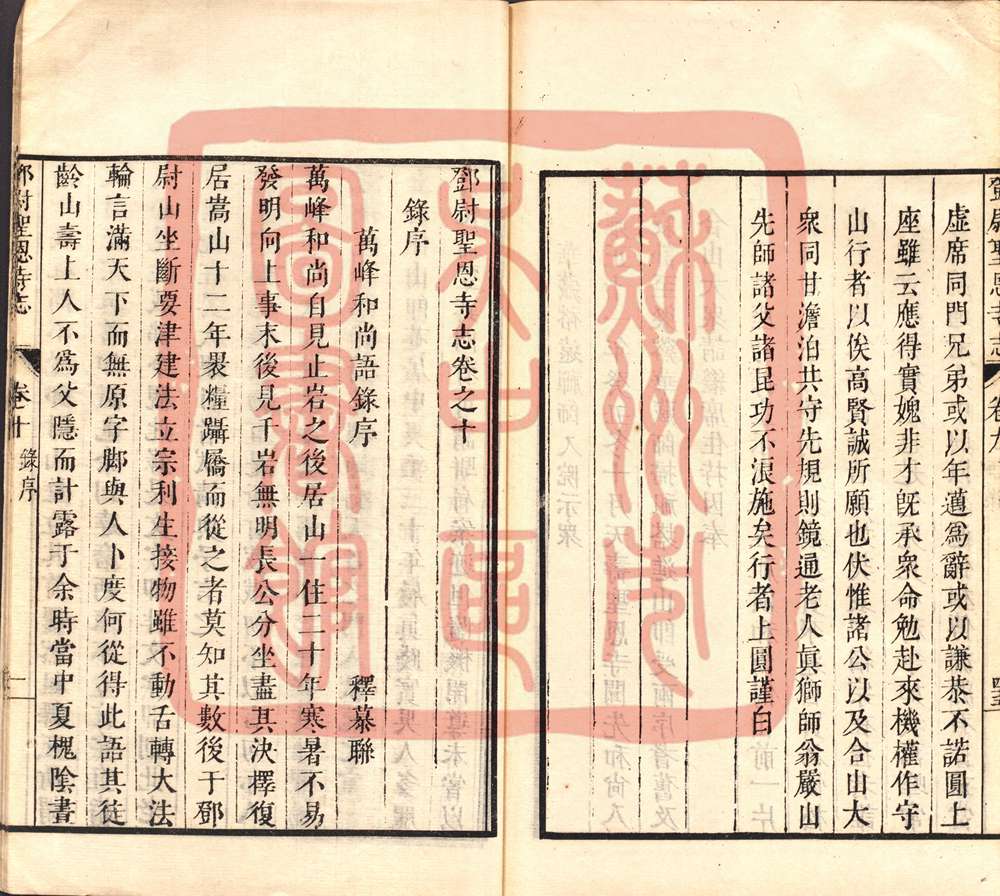 鄧尉聖恩寺志
卷九
虛席同門兄弟或以年邁爲辭或以謙恭不諾圓上
座雖云應得實媿非才旣承衆命勉赴來機權作守
山行者以俟高賢誠所願也伏惟諸公以及合山大
衆同甘澹泊共守先規則鏡通老人眞獅師翁嚴山
先師諸父諸昆功不浪施矣行者上圓謹白
鄧尉聖恩寺志卷之十
錄序
萬峰和尚語錄序
釋慕聯
萬峰和尚自見止岩之後居山一住二十年寒暑不易
發明向上事末後見千岩無明長公分坐盡其決擇復
居嵩山十二年裹糧躡屩而從之者莫知其數後于鄧
尉山坐斷要津建法立宗利生接物雖不動舌轉大法
輪言滿天下而無原字脚與人卜度何從得此語其徒
齡山壽上人不爲父隱而計露于余時當中夏槐陰晝
鄧尉聖恩寺志
卷十
錄序
一
蘇州市
文古區
圖書館